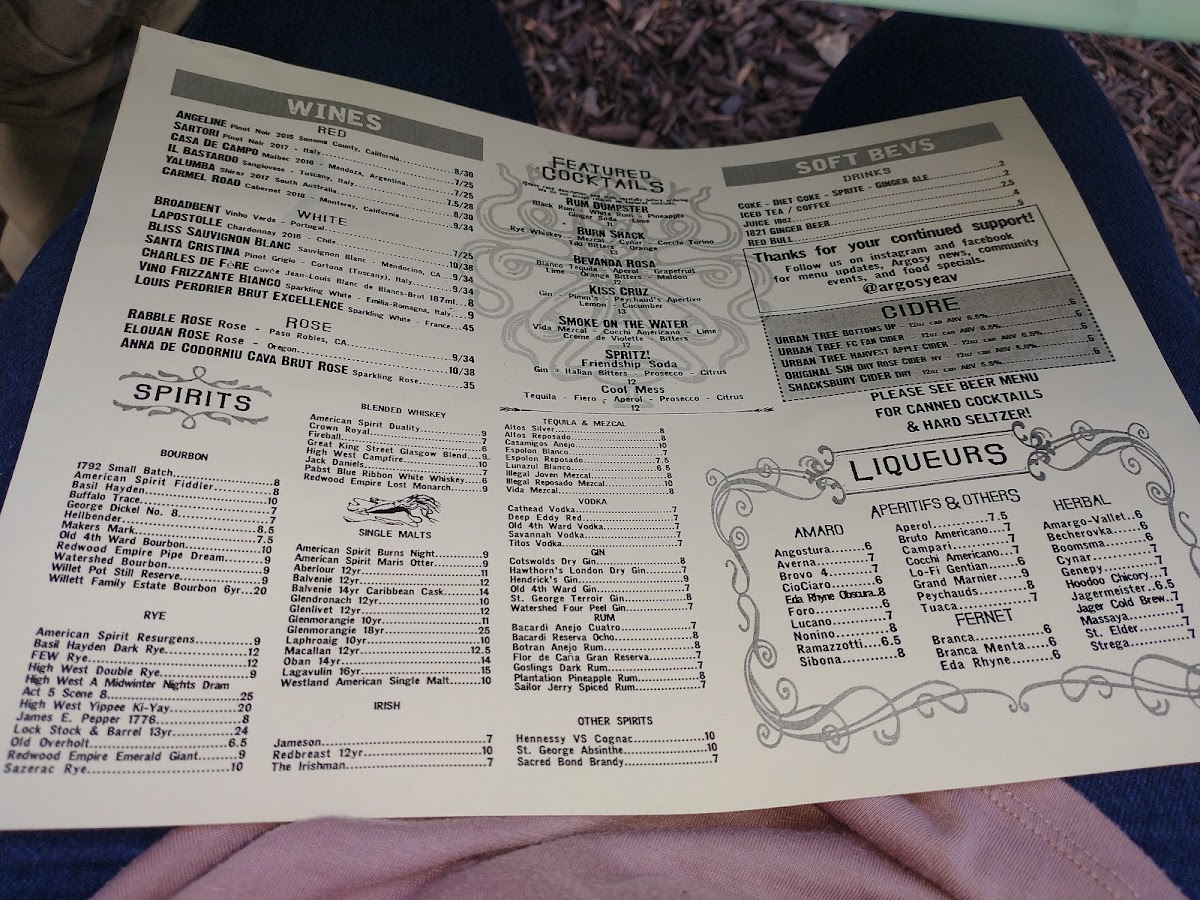 WINES
RED
ANGELINE Pinot Noir 2015 Sonoma County, California........8/30
SARTORI Pinot Noir 2017 - Italy........7/25
CASA DE CAMPO Malbec 2016 - Mendoza, Argentina........7/25
IL BASTARDO Sangiovese - Tuscany, Italy........7.5/28
YALUMBA Shiraz 2017 South Australia........8/30
CARMEL ROAD Cabernet 2018 - Monterey, California........9/34
WHITE
BROADBENT Vinho Verde - Portugal........7/25
LAPOSTOLLE Chardonnay 2016 - Chile........10/38
BLISS SAUVIGNON BLANC Sauvignon Blanc - Mendocino, CA........9/34
SANTA CRISTINA Pinot Grigio - Cortona (Tuscany), Italy........9/34
CHARLES DE FÈRE Cuvée Jean-Louis Blanc de Blancs-Brut 187ml...8
VINO FRIZZANTE BIANCO Sparkling White - Emilia-Romagna, Italy....9
LOUIS PERDRIER BRUT EXCELLENCE Sparkling White - France...45
ROSE
RABBLE ROSE Rose - Paso Robles, CA........9/34
ELOUAN ROSE Rose - Oregon........10/38
ANNA DE CODORNIU CAVA BRUT ROSE Sparkling Rose........35
FEATURED
COCKTAILS
RUM DUMPSTER
Black Rum - White Rum - Pineapple
Ginger Soda - Lime
11
BURN SHACK
Rye Whiskey - Mezcal - Cynar - Cocchi Torino
Tiki Bitters - Orange
13
BEVANDA ROSA
Blanco Tequila - Aperol - Grapefruit
Lime - Orange Bitters - Maldon
13
KISS CRUZ
Gin - Pimm's - Peychaud's Apertivo
Lemon - Cucumber
13
SMOKE ON THE WATER
Vida Mezcal - Cocchi Americano - Lime
Creme de Violette - Bitters
12
SPRITZ!
Friendship Soda
Gin - Italian Bitters - Prosecco - Citrus
12
Cool Mess
Tequila - Fiero - Aperol - Prosecco - Citrus
12
SOFT BEVS
DRINKS
COKE - DIET COKE - SPRITE - GINGER ALE........2
ICED TEA / COFFEE........2
JUICE 10oz........2.5
1821 GINGER BEER........4
RED BULL........5
Thanks for your continued support!
Follow us on instagram and facebook
for menu updates, Argosy news, community
events, and food specials.
@argosyeav
CIDRE
URBAN TREE BOTTOMS UP - 12oz can ABV 6.5%........6
URBAN TREE FC FAN CIDER - 12oz can ABV 6.5%........6
URBAN TREE HARVEST APPLE CIDER - 12oz can ABV 6.5%...6
ORIGINAL SIN DRY ROSE CIDER NY - 12oz can ABV 6.0%........6
SHACKSBURY CIDER DRY - 12oz can ABV 5.5%........6
PLEASE SEE BEER MENU
FOR CANNED COCKTAILS
& HARD SELTZER!
SPIRITS
BOURBON
1792 Small Batch........8
American Spirit Fiddler........8
Basil Hayden........10
Buffalo Trace........7
George Dickel No. 8........7
Hellbender........8.5
Makers Mark........7.5
Old 4th Ward Bourbon........10
Redwood Empire Pipe Dream........9
Watershed Bourbon........9
Willet Pot Still Reserve........9
Willett Family Estate Bourbon 6yr...20
RYE
American Spirit Resurgens........9
Basil Hayden Dark Rye........12
FEW Rye........12
High West Double Rye........9
High West A Midwinter Nights Dram
Act 5 Scene 8........25
High West Yippee Ki-Yay........20
James E. Pepper 1776........8
Lock Stock & Barrel 13yr........24
Old Overholt........6.5
Redwood Empire Emerald Giant........9
Sazerac Rye........10
BLENDED WHISKEY
American Spirit Duality........9
Crown Royal........7
Fireball........6
Great King Street Glasgow Blend...9
High West Campfire........10
Jack Daniels........7
Pabst Blue Ribbon White Whiskey....6
Redwood Empire Lost Monarch........9
SINGLE MALTS
American Spirit Burns Night........9
American Spirit Maris Otter........9
Aberlour 12yr........11
Balvenie 12yr........12
Balvenie 14yr Caribbean Cask........14
Glendronach 12yr........10
Glenlivet 12yr........12
Glenmorangie 10yr........11
Glenmorangie 18yr........25
Laphroaig 10yr........10
Macallan 12yr........12.5
Oban 14yr........14
Lagavulin 16yr........15
Westland American Single Malt....10
IRISH
Jameson........7
Redbreast 12yr........10
The Irishman........7
TEQUILA & MEZCAL
Altos Silver........8
Altos Reposado........8
Casamigos Anejo........10
Espolon Blanco........7
Espolon Reposado........7.5
Lunazul Blanco........6.5
Illegal Joven Mezcal........8
Illegal Reposado Mezcal........10
Vida Mezcal........8
VODKA
Cathead Vodka........7
Deep Eddy Red........7
Old 4th Ward Vodka........7
Savannah Vodka........7
Titos Vodka........7
GIN
Cotswolds Dry Gin........8
Hawthorn's London Dry Gin........7
Hendrick's Gin........9
Old 4th Ward Gin........7
St. George Terroir Gin........8
Watershed Four Peel Gin........8
RUM
Bacardi Anejo Cuatro........7
Bacardi Reserva Ocho........8
Botran Anejo Rum........8
Flor de Caña Gran Reserva........7
Goslings Dark Rum........7
Plantation Pineapple Rum........8
Sailor Jerry Spiced Rum........7
OTHER SPIRITS
Hennessy VS Cognac........10
St. George Absinthe........10
Sacred Bond Brandy........7
LIQUEURS
AMARO
Angostura......6
Averna........7
Brovo 4........7
CioCiaro........6
Eda Rhyne Obscura..8
Foro........6
Lucano........7
Nonino........8
Ramazzotti....6.5
Sibona........8
APERITIFS & OTHERS
Aperol........7.5
Bruto Americano...7
Campari........7
Cocchi Americano...7
Lo-Fi Gentian......6
Grand Marnier......9
Peychauds........8
Tuaca........7
FERNET
Branca........6
Branca Menta......6
Eda Rhyne........6
HERBAL
Amargo-Vallet..6
Becherovka......6
Boomsma........6
Cynar........7
Genepy........7
Hoodoo Chicory...7
Jagermeister...6.5
Jager Cold Brew..7
Massaya........7
St. Elder........7
Strega........7